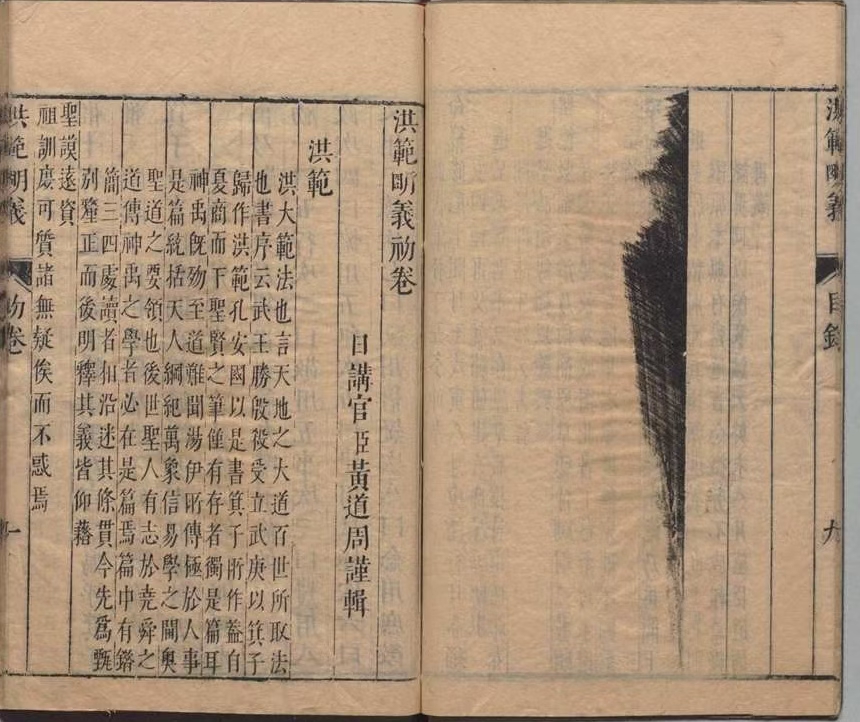 洪範明義
目錄
九
洪範眀義初卷
日講官臣黃道周謹輯
洪範
洪大範法也言天地之大道百世所取法
也書序云武王勝殷殺受立武庚以箕子
歸作洪範孔安國以是書箕子所作蓋自
夏商而下聖賢之筆僅有存者獨是篇耳
神禹旣歿至道難聞湯伊所傳極於人事
是篇統括天人綱紀萬象信易學之閫奧
聖道之要領也後世聖人有志於堯舜之
道傳神禹之學者必在是篇焉篇中有錯
簡三四處讀者狃沿迷其條貫今先為甄
別釐正而後明釋其義皆仰藉
聖謨遠資
祖訓庶可質諸無疑俟而不惑焉
洪範明義
初卷
一